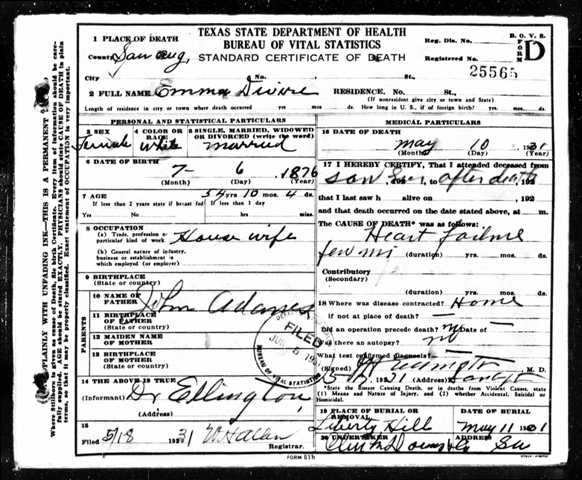 TEXAS STATE DEPARTMENT OF HEALTH
BUREAU OF VITAL STATISTICS
STANDARD CERTIFICATE OF DEATH
B. O. V. S.
FORM D
1 PLACE OF DEATH
County San Aug,
Reg. Dis. No.
Registered No. 25565
City No. St.,
2 FULL NAME Emma
RESIDENCE. No. St.,
(If nonresident give city or town and State)
Length of residence in city or town where death occurred yrs. mos. ds. How long in U. S., if of foreign birth? yrs. mos. ds.
PERSONAL AND STATISTICAL PARTICULARS
3 SEX Female
4 COLOR OR RACE White
5 SINGLE, MARRIED, WIDOWED OR DIVORCED (write the word) married
6 DATE OF BIRTH
7- 6 1876
(Month) (Day) (Year)
7 AGE 54 yrs. 10 mos. 4 ds.
If less than 2 years state if breast fed If less than 1 day
Yes No hrs. min.
8 OCCUPATION
(a) Trade, profession or particular kind of work House wife
(b) General nature of industry, business or establishment in which employed (or employer)
9 BIRTHPLACE
(State or country)
PARENTS
10 NAME OF FATHER John Adames
11 BIRTHPLACE OF FATHER
(State or country)
12 MAIDEN NAME OF MOTHER
13 BIRTHPLACE OF MOTHER
(State or country)
14 THE ABOVE IS TRUE
(Informant) Dr Ellington
(Address)
15
Filed 5/18 1931 W H Allen
Registrar.
FILED
BUREAU OF VITAL STATISTICS
MEDICAL PARTICULARS
16 DATE OF DEATH
may 10 1931
(Month) (Day) (Year)
17 I HEREBY CERTIFY, That I attended deceased from
after death
that I last saw h alive on , 192
and that death occurred on the date stated above, at m.
The CAUSE OF DEATH* was as follows:
Heart failure
few mi (duration) yrs. mos. ds.
Contributory
(Secondary)
(duration) yrs. mos. ds.
18 Where was disease contracted? Home
if not at place of death?
Did an operation precede death? no Date of
Was there an autopsy? no
What test confirmed diagnosis?
(Signed) M. D.
*State the Disease Causing Death, or in deaths from Violent Causes, state (1) Means and Nature of Injury, and (2) whether Accidental, Suicidal or Homicidal.
19 PLACE OF BURIAL OR REMOVAL
Liberty Hill
DATE OF BURIAL
May 11 1931
20 UNDERTAKER
ADDRESS
FORM B1b